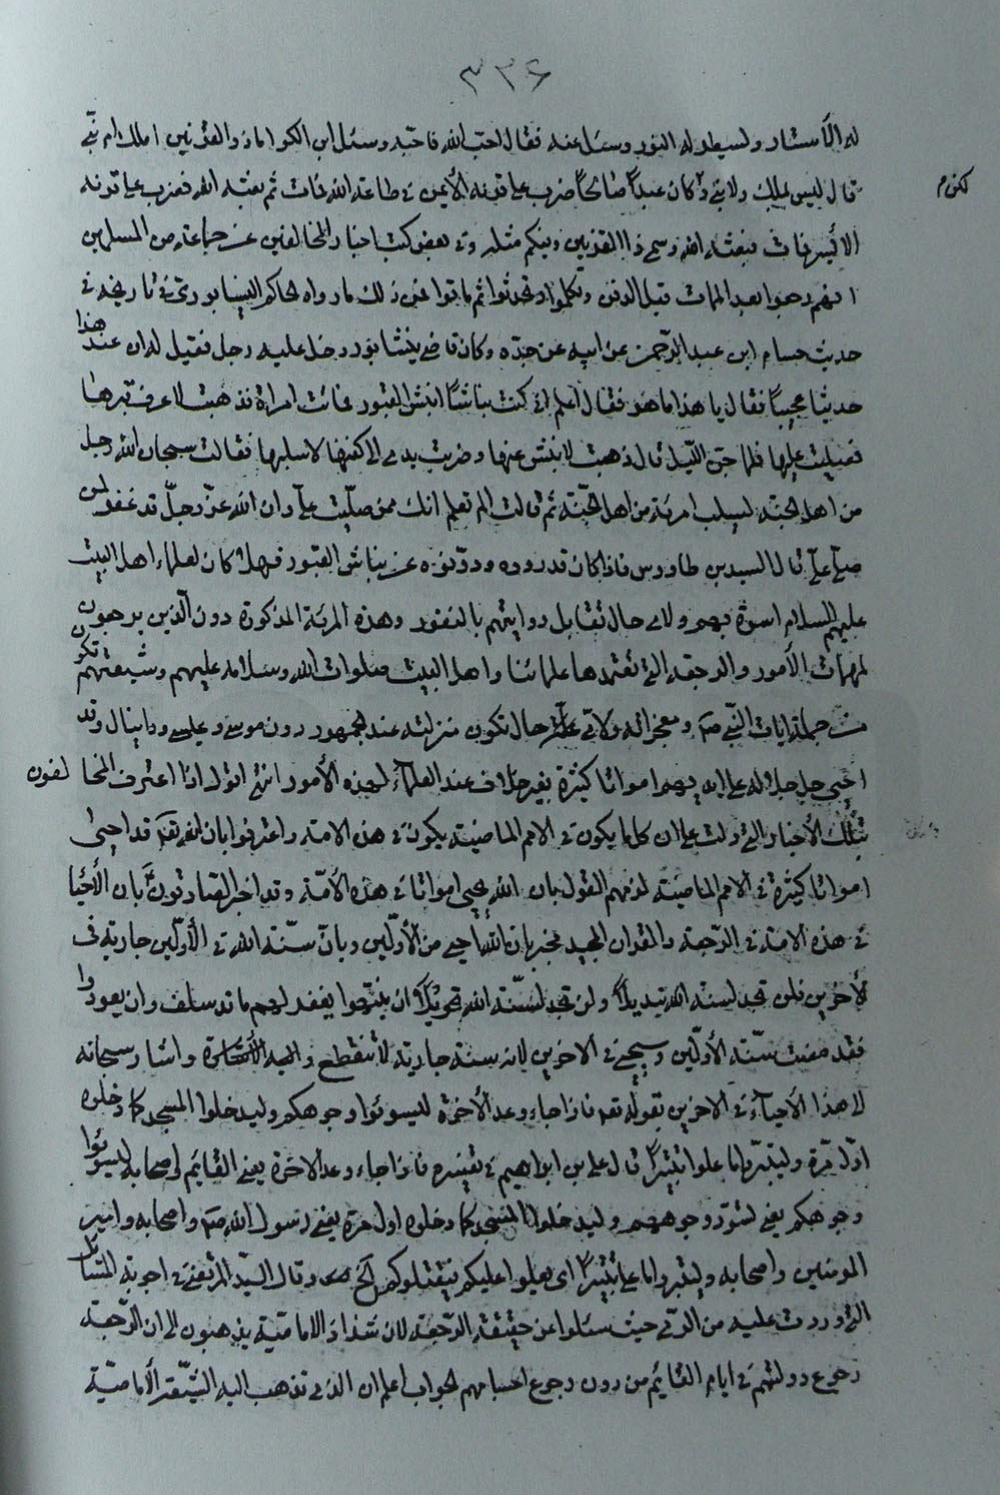 ٣٣۶
له الاستار وبسط له النور وسئل عنه فقال احب الله فاحبه وسئل ابن الكوا ما ذو القرنين املك ام نبي
قال ليس بملك ولا نبي و كان عبدًا صالحًا ضرب على قرنه الأيمن في طاعة الله فمات ثم بعثه الله فضرب على قرنه
لكن م
الايسر فمات فبعثه الله وسمي ذا القرنين وفيكم مثله وفي بعض كتب اخبار المخالفين عن جماعة من المسلمين
انهم رجعوا بعد الممات قبل الدفن وتكلموا وتحدثوا ثم ماتوا فمن ذلك ما رواه الحاكم النيسابوري في تاريخه في
حديث حسام ابن عبد الرحمن عن ابيه عن جده وكان قاضي نيشابور دخل عليه رجل فقيل له ان عند هذا
حديثا عجيبًا فقال يا هذا ما هو فقال اعلم اني كنت نباشًا انبش القبور فماتت امراة فذهبت لاعرف قبرها
فصليت عليها فلما جن الليل قال ذهبت لانبش عنها وضربت يدي الى كفنها لاسلبها فقالت سبحان الله رجل
من اهل الجنة يسلب امرءة من اهل الجنة ثم قالت الم تعلم انك ممن صليت علي وان الله عز وجل قد غفر لمن
صلى علي قال السيد بن طاوس فاذا كان قد رووه ودونوه عن نباش القبور فهلا كان لعلماء اهل البيت
عليهم السلام اسوة بهم ولاي حال تقابل روايتهم بالنفور وهذه المرءة المذكورة دون الذين يرجعون
لمهمات الأمور والرجعة التي تعتقدها علمائنا واهل البيت صلوات الله وسلامه عليهم وشيعتهم تكون
من جملة ايات النبي ص ومعجزاته ولاي حال تكون منزلته عند الجمهور دون موسى وعيسى ودانيال وقد
احيى جل جلاله على ايديهم امواتا كثيرة بغير خلاف عند العلماء لهذه الأمور انتهى اقول اذا اعترف المخالفون
بتلك الأخبار التي دلت على ان كلما يكون في الامم الماضية يكون في هذه الامة واعترفوا بان الله تعه قد احيى
امواتا كثيرة في الامم الماضية لزمهم القول بان الله يحيي امواتا في هذه الأمة وقد اخبر الصادقون بان الأحيا
في هذه الامة في الرجعة والقران المجيد مخبر بان الله احيى من الأولين وبان سنة الله في الأولين جارية في
الأخرين فلن تجد لسنة الله تبديلًا ولن تجد لسنة الله تحويلًا ان ينتهوا يغفر لهم ما قد سلف وان يعودوا
فقد مضت سنة الأولين وسيجئ في الاخرين لانه سنة جارية لا تنقطع واليه الأشارة واشار سبحانه
الى هذا الأحياء في الاخرين بقوله تعه فاذا جاء وعد الأخرة ليسوئوا وجوهكم وليدخلوا المسجد كما دخلوه
اول مرة وليتبروا ما علوا تتبيرًا قال علي بن ابراهيم في تفسيره فاذا جاء وعد الاخرة يعني القايم واصحابه ليسوئوا
وجوهكم يعني لتسود وجوههم وليدخلوا المسجد كما دخلوه اول مرة يعني رسول الله ص واصحابه وامير
المومنين واصحابه وليتبروا ما علوا تتبيرًا اى يعلوا عليكم فيقتلوكم الخ وقال السيد المرتضى في اجوبة المسائل
التي وردت عليه من الري حيث سئلوا عن حقيقة الرجعة لان شذاذ الامامية يذهبون الى ان الرجعة
رجوع دولتهم في ايام القائم من دون رجوع اجسامهم الجواب اعلم ان الذي تذهب اليه الشيعة الأمامية